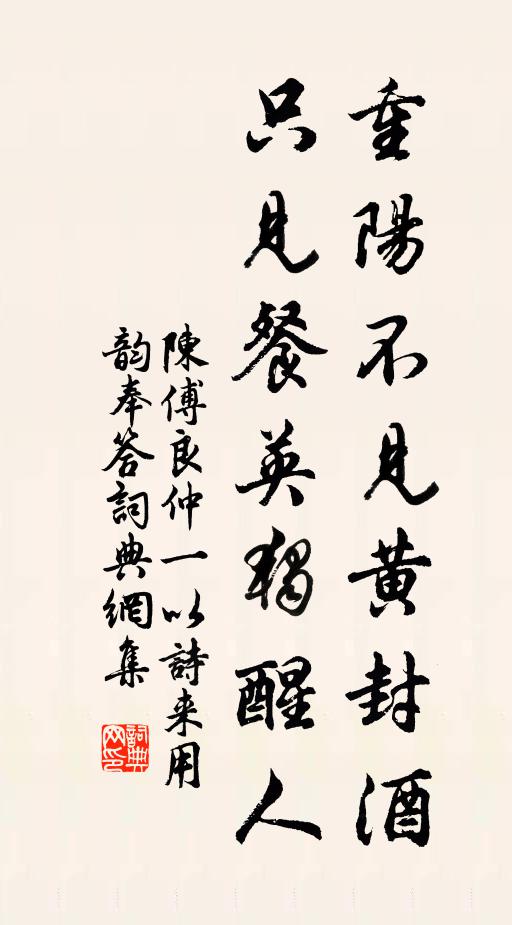 重陽不見黄封酒
只見餐英獨醒人
陳傅良仲一以詩来用
韵奉答詞典網集
詞典网印